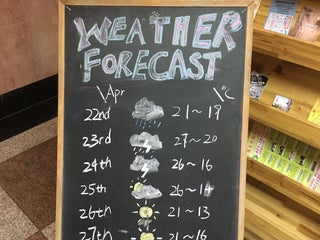 WEATHER
FORECAST
\Apr \℃
22nd 21~19
23rd 27~20
24th 26~16
25th 26~14
26th 21~13
27th 21~16